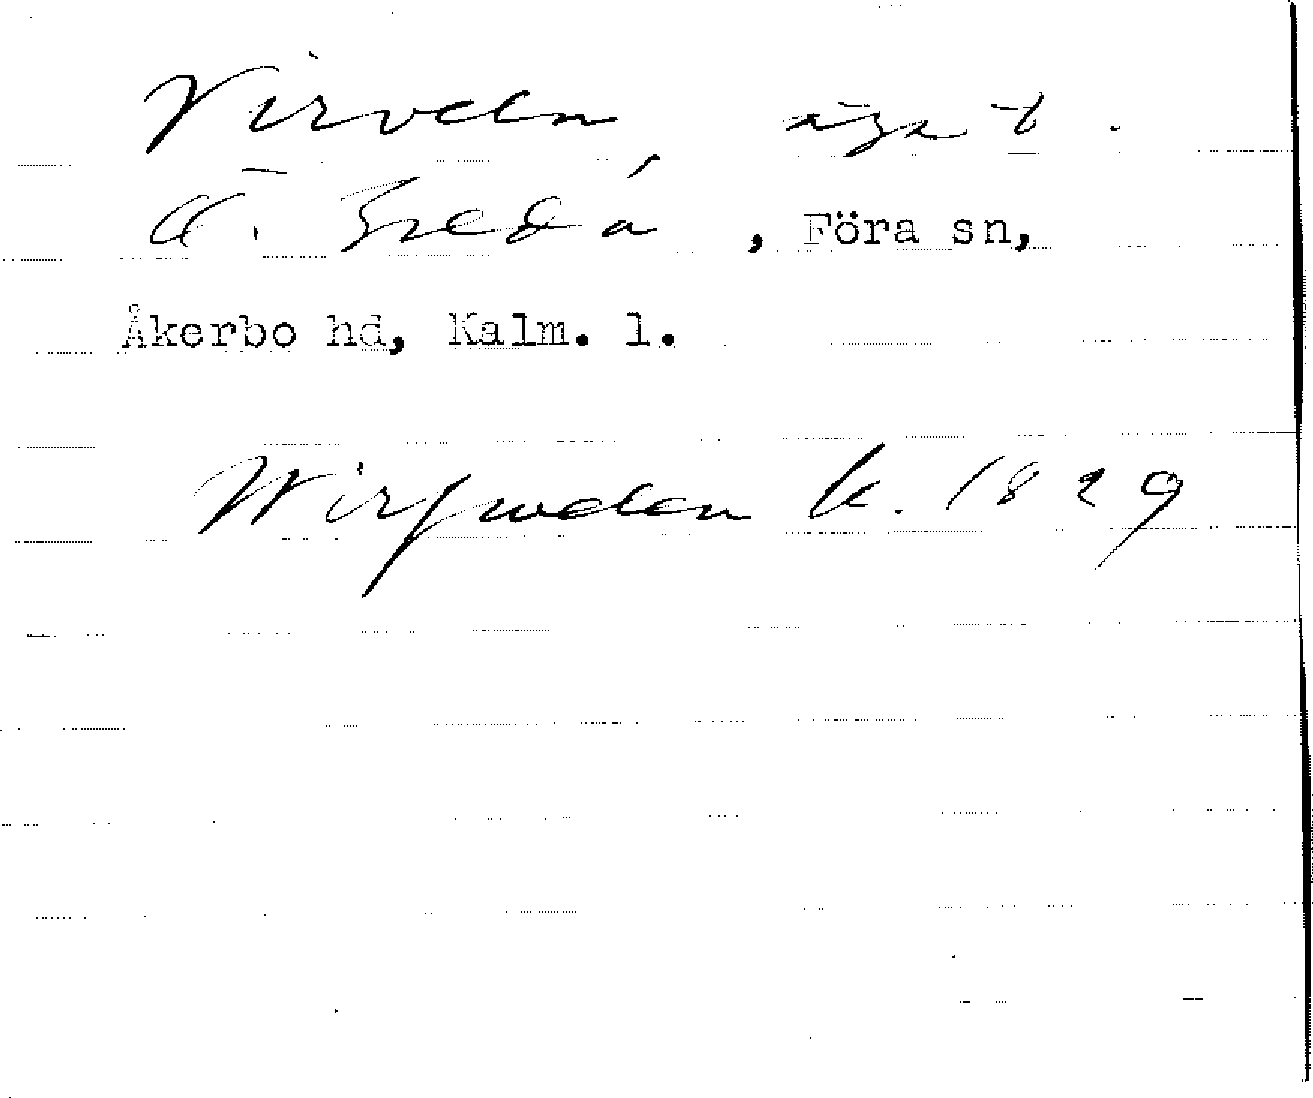 Virveln
Ö. Greda, Föra sn,
Åkerbo hd, Kalm. l.
Wirfwelen k. 1829